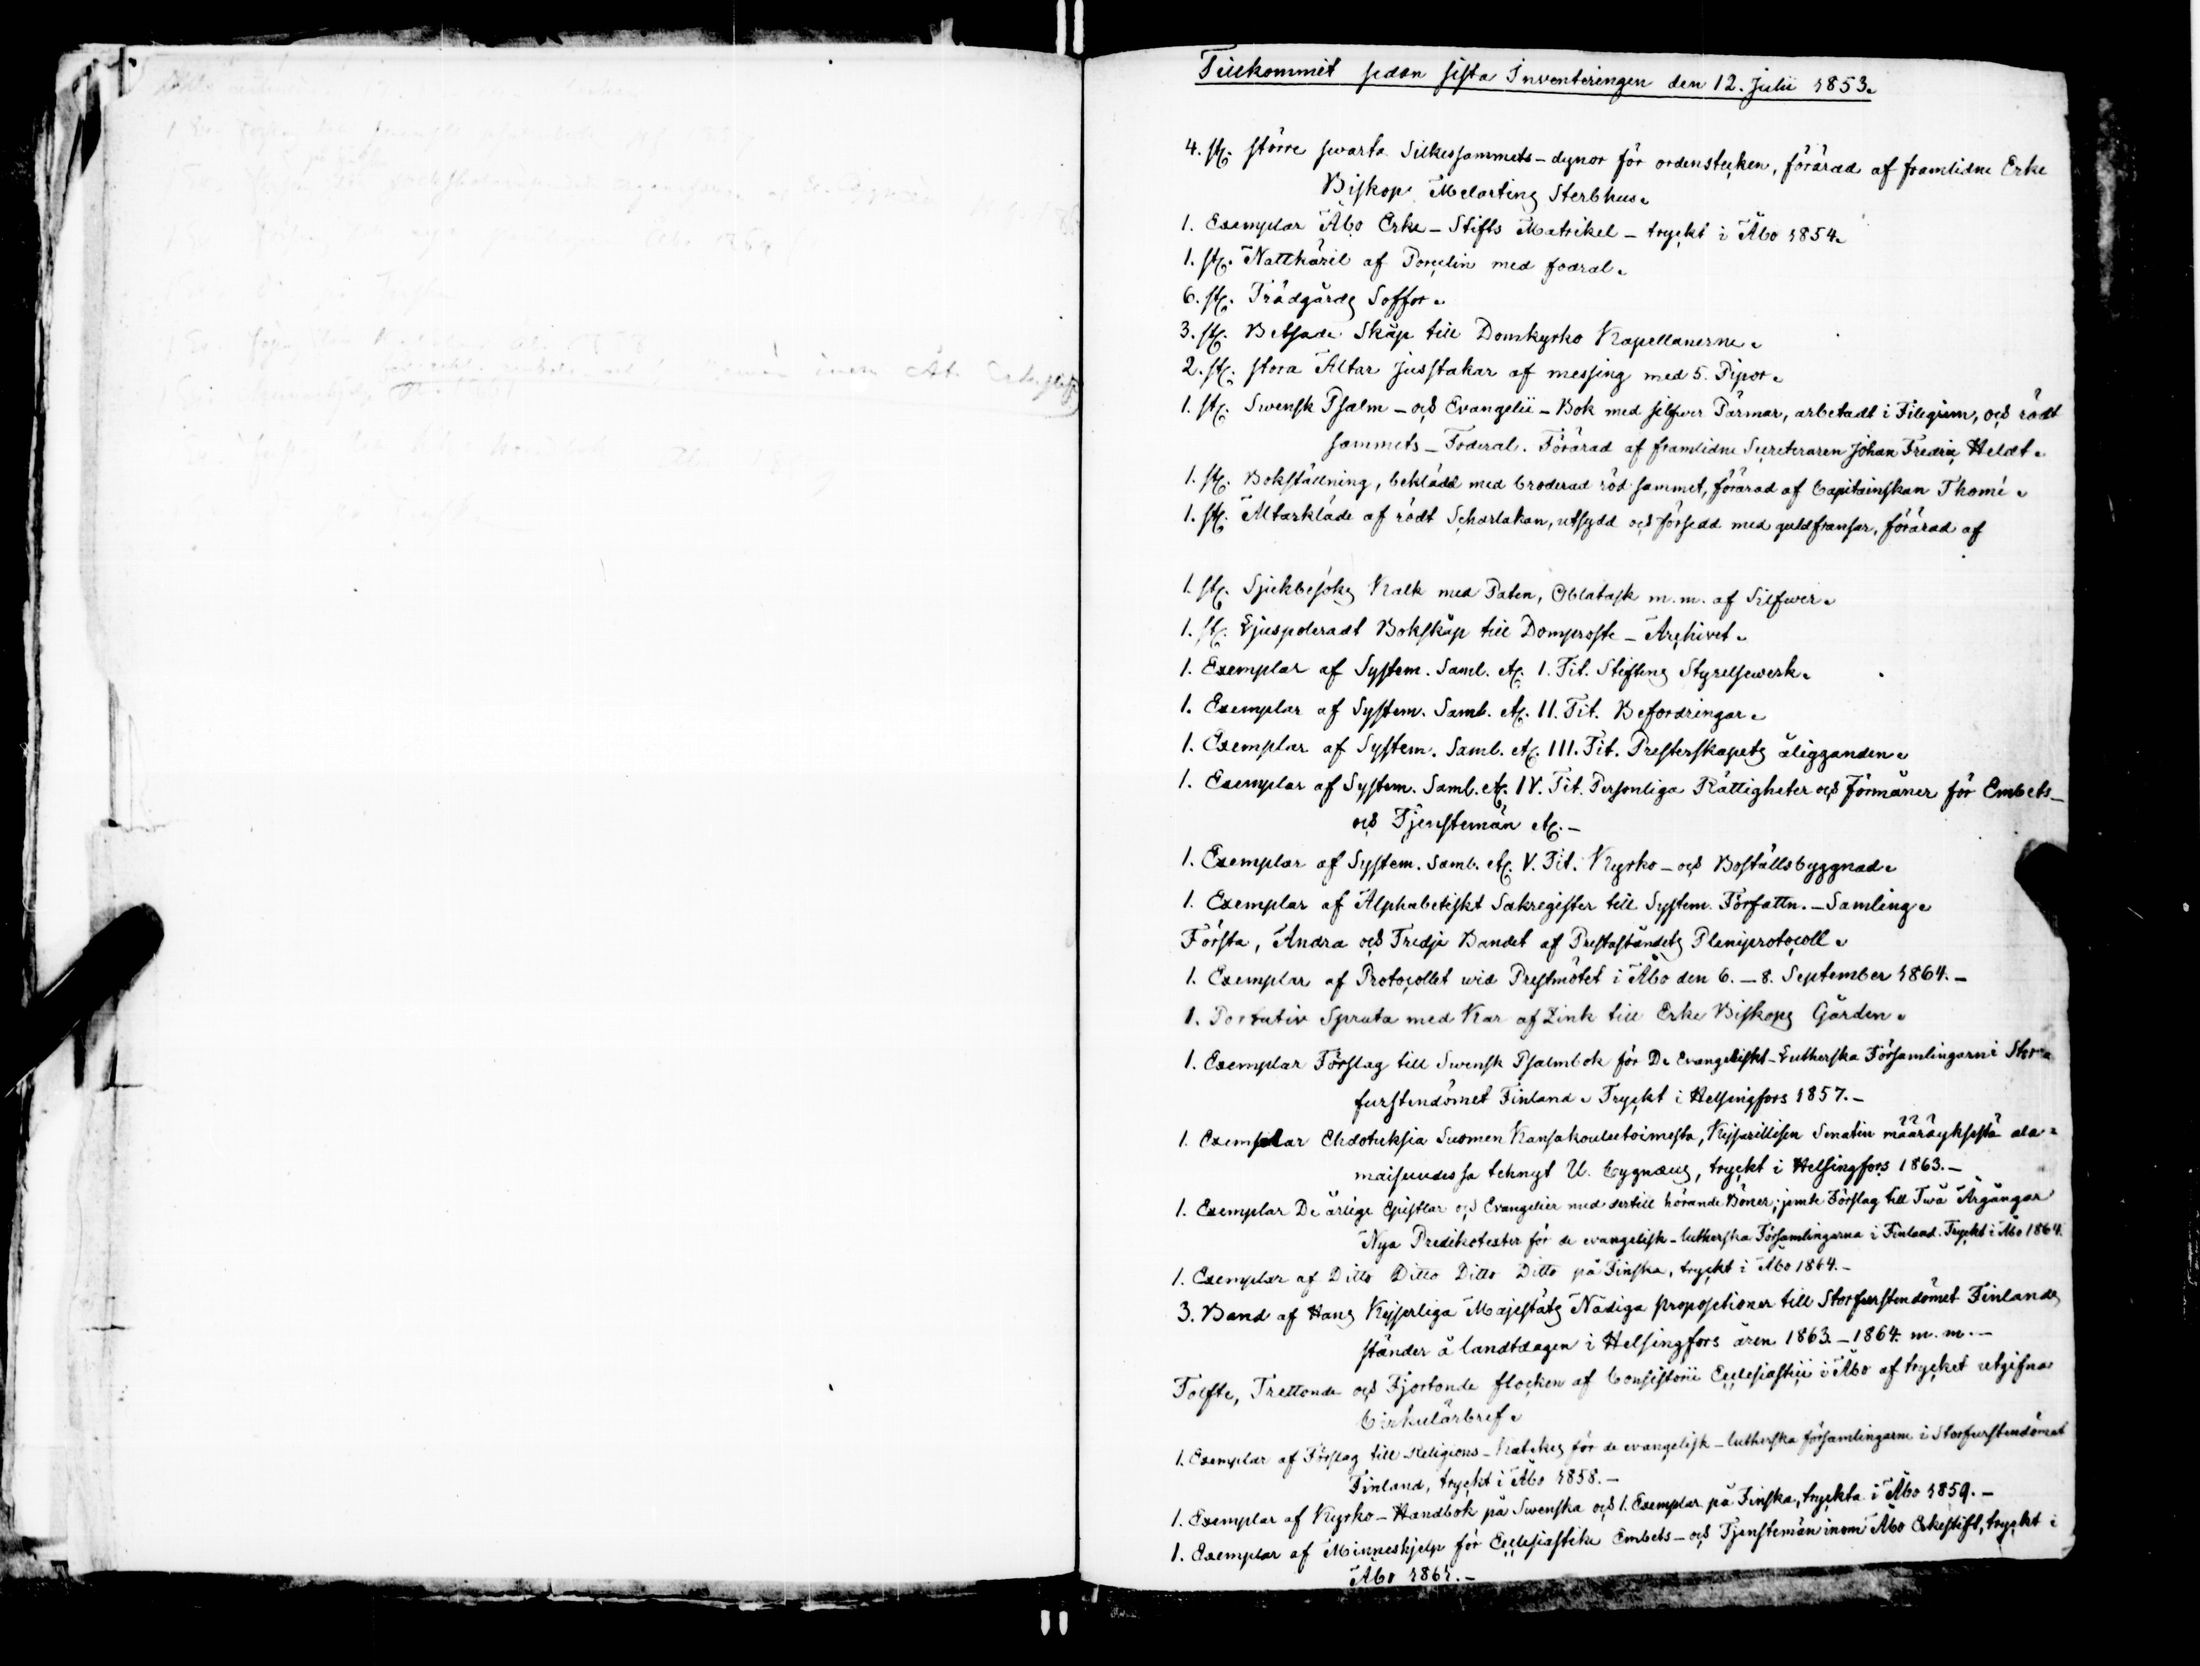 Tillkommit sedan sista Inventeringen den 12. Julii 1853.
4. st. större swarta Silkessammets-dynor för ordenstecken, förärad af framlidne Erke
Biskop Melartins Sterbhus.
1. Exemplar Åbo Erke-Stifts Matrikel - tryckt i Åbo 1854.
1. st. Nattkäril af Porcelin med fodral.
6. st. Trädgårds Soffor.
3. st. Betsade Skåp till Domkyrko Kapellanerne.
2. st. stora Altar ljusstakar af messing med 5. Pipor.
1. st. Swensk Psalm- och Evangelii-Bok med silfwer Pärmar, arbetadt i Filegram, och rödt
sammets-Foderal. Förärad af framlidne Secreteraren Johan Fredric Heldt.
1. st. Bokställning, beklädd med broderad röd sammet, förärad af Capitainskan Thomé.
1. st. Altarkläde af rödt Scharlakan, utsydd och försedd med guldfransar, förärad af
1. st. Sjukbesöks Kalk med Paten, Oblatask m.m. af Silfwer.
1. st. Ljuspoleradt Bokskåp till Domprosts-Archivet.
1. Exemplar af System. Saml. etc. I. Tit. Stiftens Styrelsewerk.
1. Exemplar af System. Saml. etc. II. Tit. Befordringar.
1. Exemplar af System. Saml. etc. III. Tit. Presterskapets åligganden.
1. Exemplar af System. Saml. etc. IV. Tit. Personliga Rättigheter och Förmåner för Embets-
och Tjenstemän etc. -
1. Exemplar af System. Saml. etc. V. Tit. Kyrko- och Boställsbyggnad.
1. Exemplar af Alphabetiskt Sakregister till System. Författn.-Samling.
Första, Andra och Tredje Bandet af Presteståndets Pleniprotocoll.
1. Exemplar af Protocollet wid Prestmötet i Åbo den 6.-8. September 1864. -
1. Portativ Spruta med Kar af Zink till Erke Biskops Gården.
1. Exemplar Förslag till Swensk Psalmbok för De Evangeliskt-Lutherska Församlingarne i Stor-
furstendömet Finland. Tryckt i Helsingfors 1857. -
1. Exemplar Ehdotuksia Suomen Kansakoulutoimesta, Keisarillisen Senatin määräyksestä ala-
maisuudessa tehnyt U. Cygnæus, tryckt i Helsingfors 1863. -
1. Exemplar De årlige Epistlar och Evangelier med dertill hörande Böner; jemte Förslag till Twå Årgångar
Nya Predikotexter för de evangelisk-lutherska Församlingarna i Finland. Tryckt i Åbo 1864.
1. Exemplar af Ditto Ditto Ditto Ditto på Finska, tryckt i Åbo 1864. -
3. Band af Hans Kejserliga Majestäts Nådiga propositioner till Storfurstendömet Finlands
ständer å landtdagen i Helsingfors åren 1863.-1864. m.m. -
Tolfte, Trettonde och Fjortonde flocken af Consistorii Ecclesiastici i Åbo af trycket utgifna
Cirkulärbref.
1. Exemplar af Förslag till Religions-Katekes för de evangelisk-lutherska församlingarne i Storfurstendömet
Finland, tryckt i Åbo 1858. -
1. Exemplar af Kyrko-Handbok på Swenska och 1. Exemplar på Finska, tryckta i Åbo 1859. -
1. Exemplar af Minneshjelp för Ecclesiastike Embets- och Tjenstemän inom Åbo Erkestift, tryckt i
Åbo 1861. -